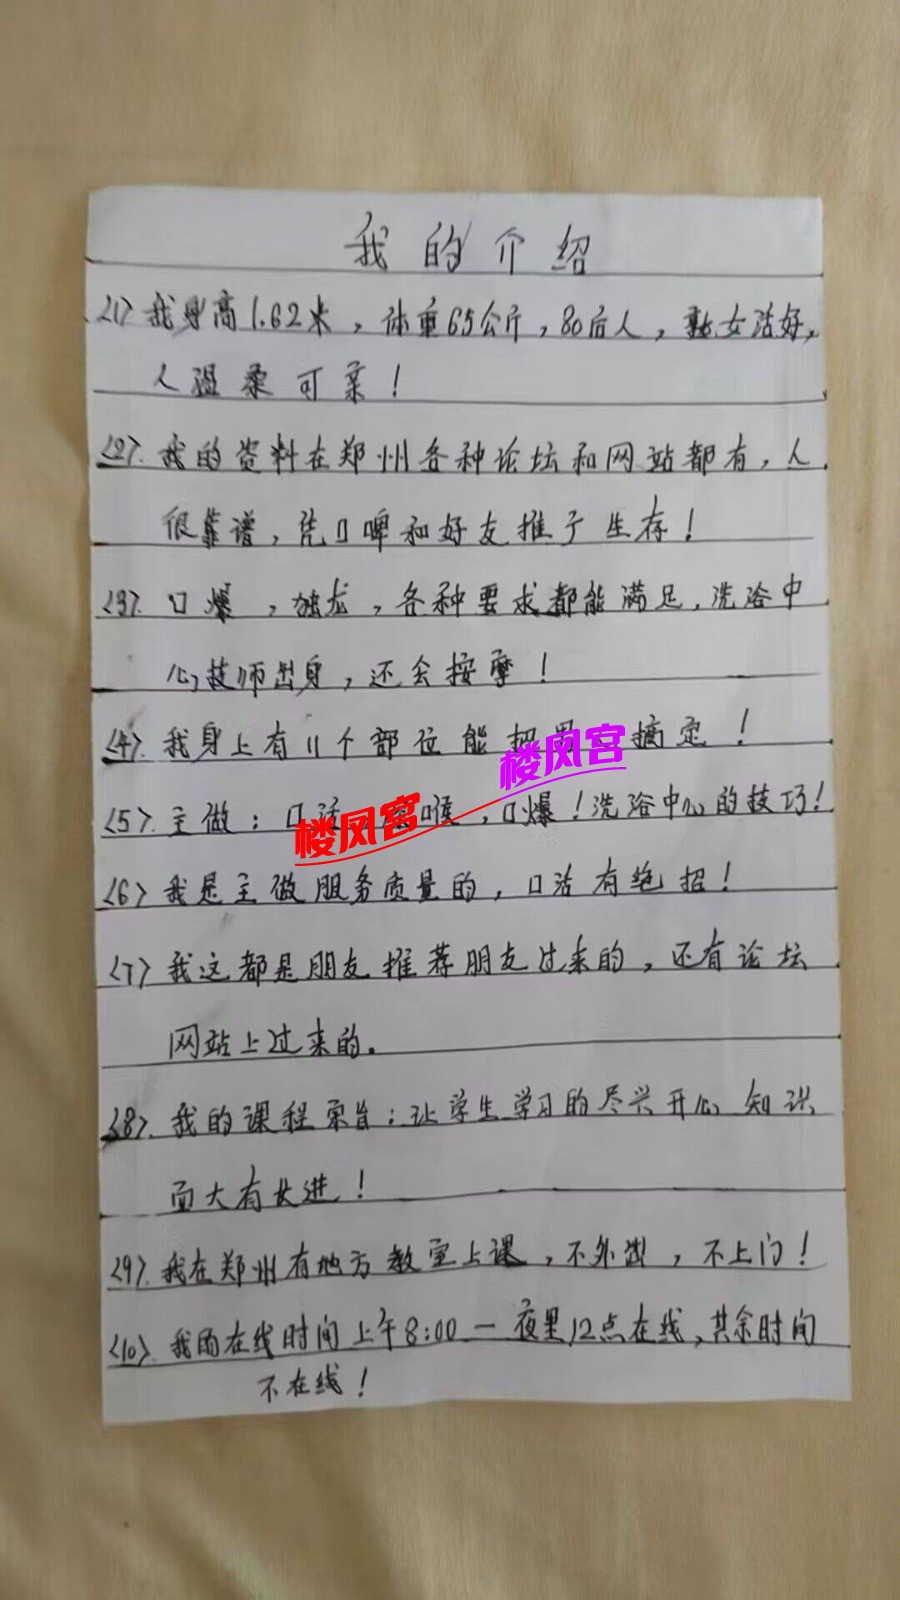 我的介绍
<1>我身高1.62米，体重65公斤，80后人，熟女活好，
人温柔可亲！
<2>.我的资料在郑州各种论坛和网站都有，人
很靠谱，凭口啤和好友推广生存！
<3>.口爆，独龙，各种要求都能满足.洗浴中
心技师出身，还会按摩！
<4>.我身上有11个部位能把男 搞定！
楼凤宫
<5>.主做：口 喉，口爆！洗浴中心的技巧！
楼凤宫
<6>我是主做服务质量的，口活有绝招！
<7>我这都是朋友推荐朋友过来的，还有论坛
网站上过来的。
<8>.我的课程宗旨：让学生学习的尽兴开心 知识
面大有长进！
<9>.我在郑州有地方教室上课，不外出，不上门！
<10>.我的在线时间上午8:00一夜里12点在线，其余时间
不在线！